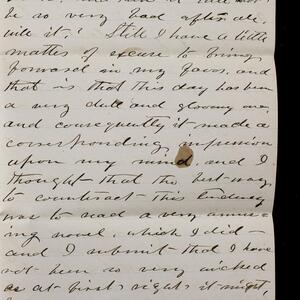 be so very bad after all,
will it? Still I have a little
matter of excuse to bring
forward in my favor, and
that is that this day has been
a very dull and gloomy one,
and consequently it made a
corresponding impression
upon my mind, and I
thought that the best way
to counteract this tendency
was to read a very amus-
ing novel, which I did—
and I submit that I have
not been so very wicked
as at first sight it might